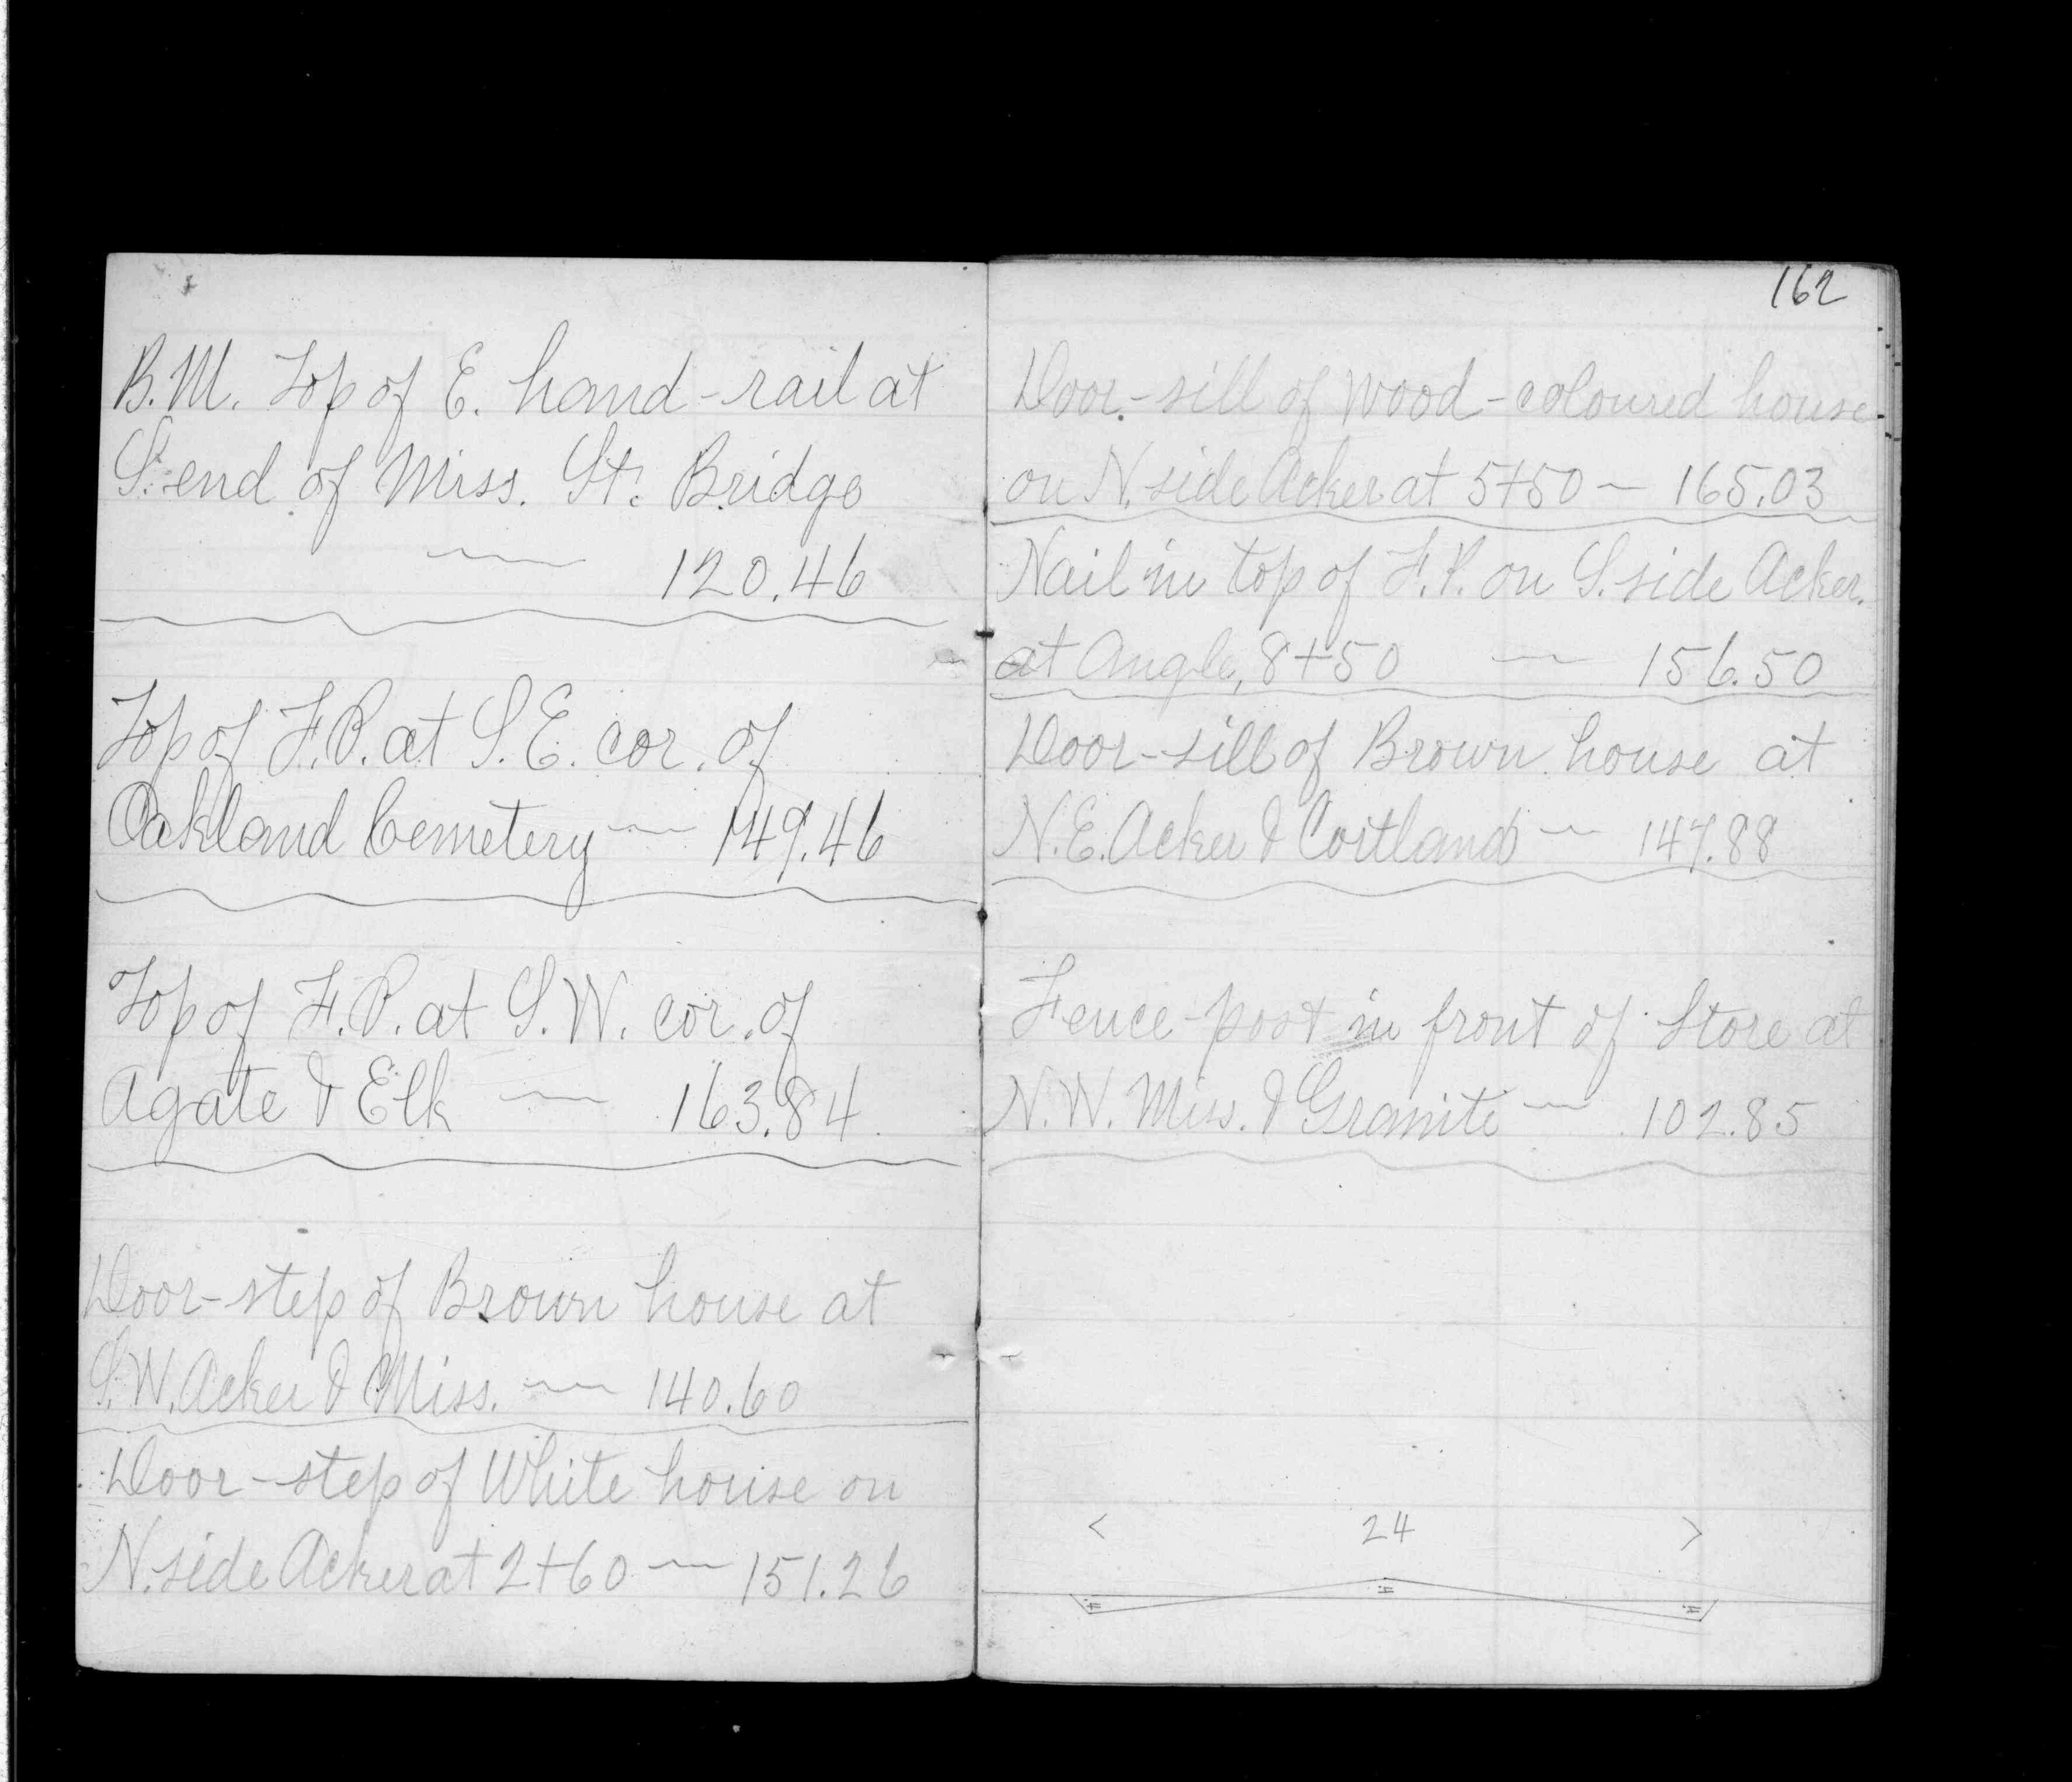 B.M. Top of E. hand-rail at
S. end of Miss. St. Bridge
— 120.46
Top of F.P. at S.E. cor. of
Oakland Cemetery — 149.46
Top of F.P. at S.W. cor. of
Agate & Elk — 163.84
Door-step of Brown house at
S.W. Acker & Miss. — 140.60
Door-step of White house on
N. side Acker at 2+60 — 151.26
162
Door-sill of Wood-coloured house
on N. side Acker at 5+50 — 165.03
Nail in top of F.P. on S. side Acker.
at Angle, 8+50 — 156.50
Door-sill of Brown house at
N.E. Acker & Cortland — 147.88
Fence-post in front of Store at
N.W. Miss. & Granite — 102.85
< 24 >